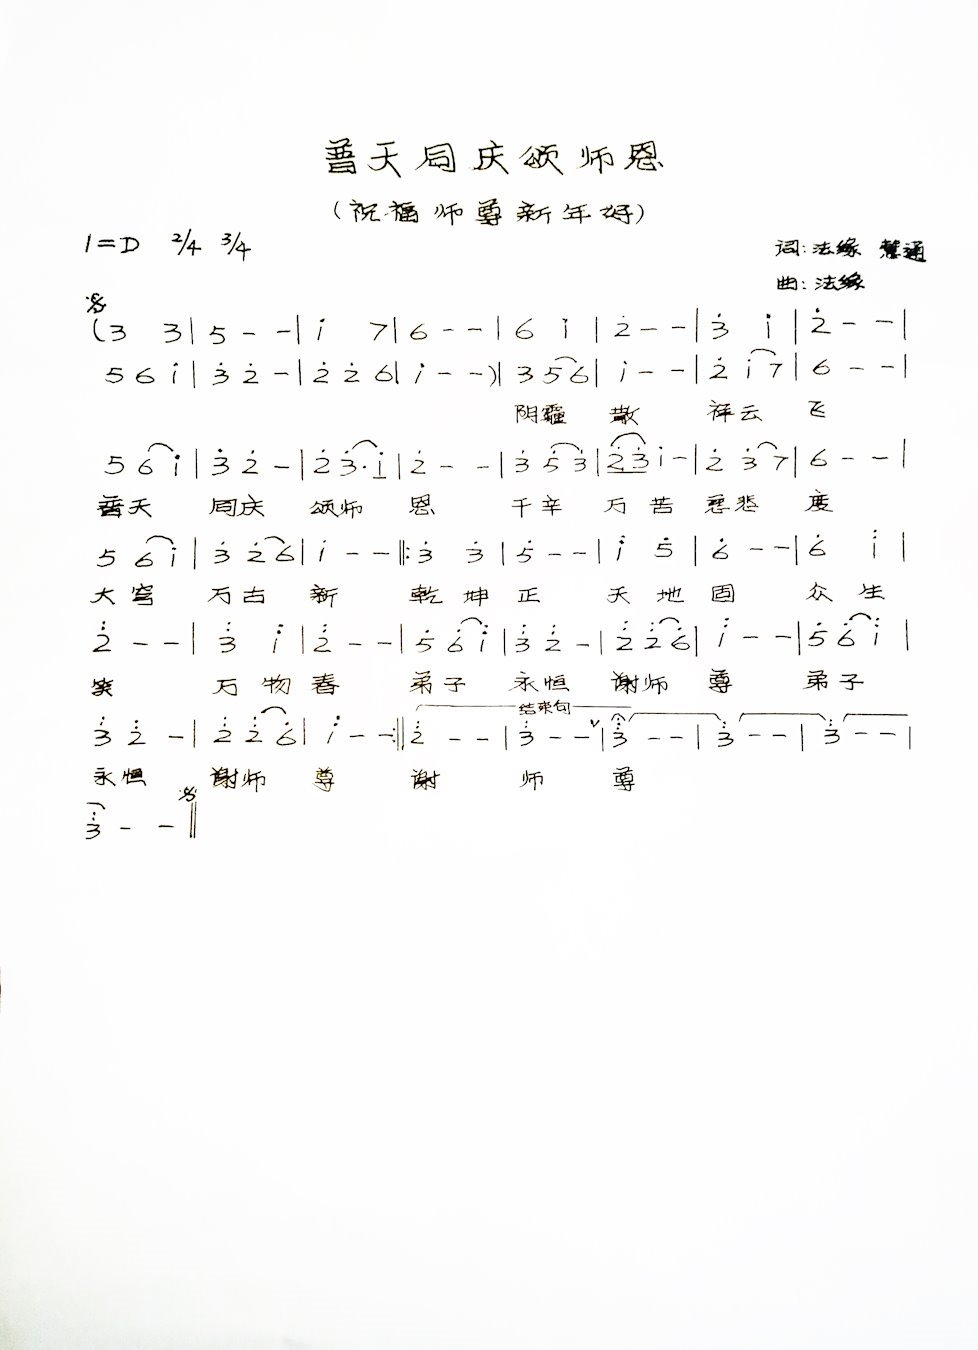 普天同庆颂师恩
(祝福师尊新年好)
1=D 2/4 3/4 词:法缘 慧通
曲:法缘
𝄋
(3 3 | 5 - - | i̇ 7 | 6 - - | 6 i̇ | 2̇ - - | 3̇ i̇ | 2̇ - - |
5 6 i̇ | 3̇ 2̇ - | 2̇ 2̇ 6 | i̇ - - ) | 3 5 6 | i̇ - - | 2̇ i̇ 7 | 6 - - |
阴霾 散 祥云 飞
5 6 i̇ | 3̇ 2̇ - | 2̇ 3̇· i̇ | 2̇ - - | 3̇ 5̇ 3̇ | 2̇ 3̇ i̇ - | 2̇ 3̇ 7 | 6 - - |
普天 同庆 颂师 恩 千辛 万 苦 慈悲 度
5 6 i̇ | 3̇ 2̇ 6 | i̇ - - ‖: 3̇ 3̇ | 5̇ - - | i̇ 5̇ | 6̇ - - | 6̇ i̇ |
大穹 万古 新 乾 坤 正 天 地 固 众 生
2̇ - - | 3̇ i̇ | 2̇ - - | 5̇ 6̇ i̇ | 3̇ 2̇ - | 2̇ 2̇ 6̇ | i̇ - - | 5̇ 6̇ i̇ |
笑 万 物 春 弟子 永恒 谢师 尊 弟子
结束句
3̇ 2̇ - | 2̇ 2̇ 6̇ | i̇ - - :‖ 2̇ - - | 3̇ - - ∨ | 3̇ - - | 3̇ - - | 3̇ - - |
永恒 谢师 尊 谢 师 尊
𝄋
3̇ - - ‖